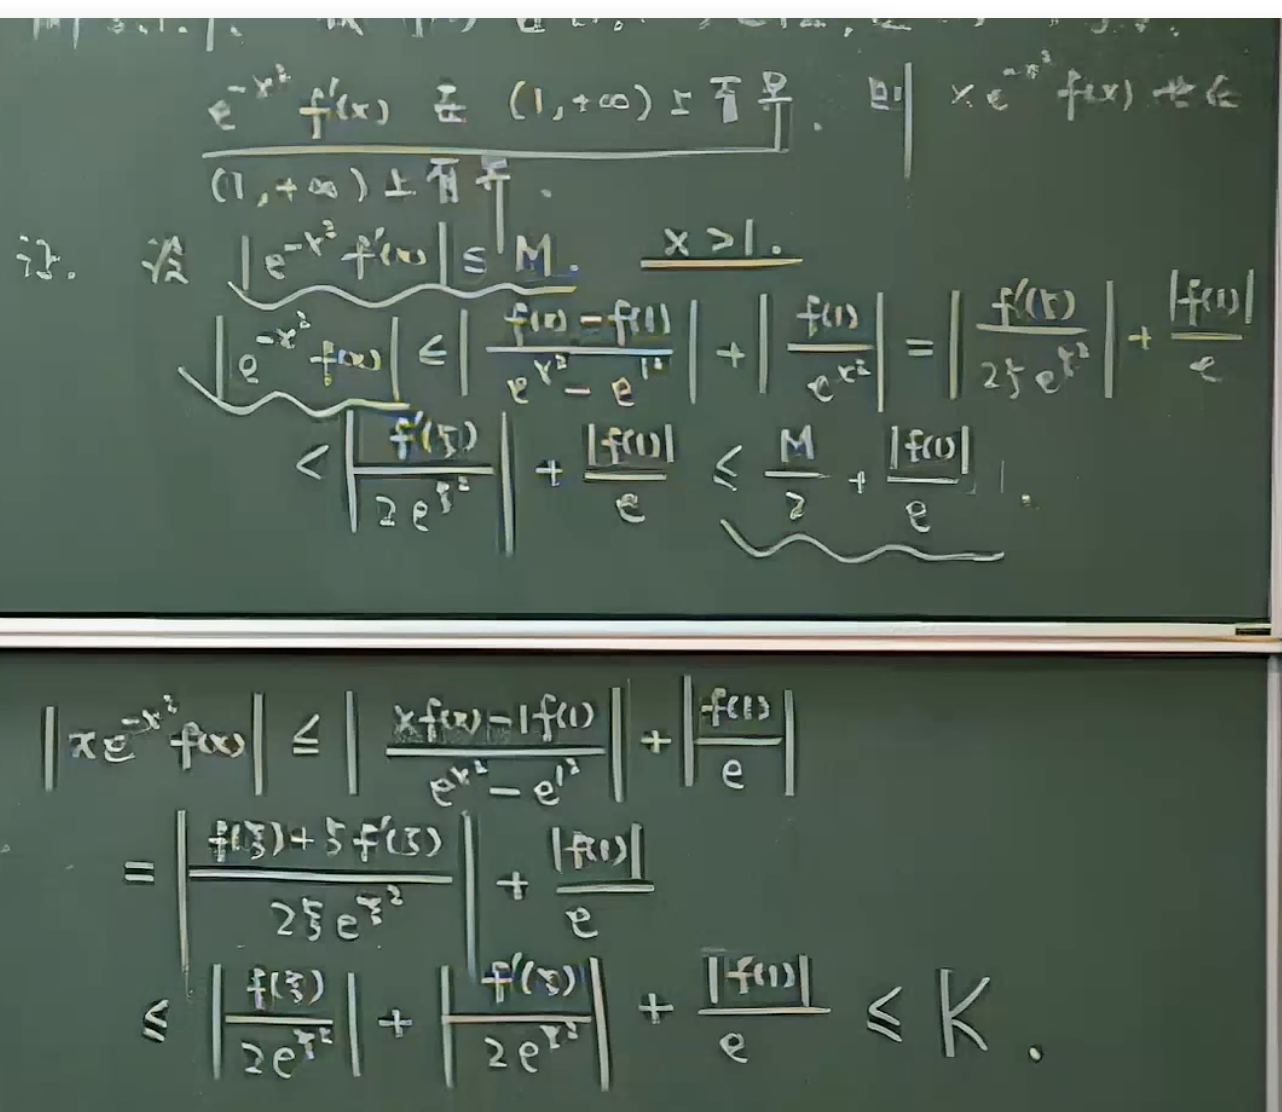 e^{-x²} f'(x) 在 (1,+∞) 上有界. 则 x e^{-x²} f(x) 也在
(1,+∞) 上有界.
证. 设 |e^{-x²} f'(x)| ≤ M. x>1.
|e^{-x²} f(x)| ≤ |(f(x)-f(1))/(e^{x²}-e^{1²})| + |f(1)/e^{x²}| = |f'(ξ)/(2ξe^{ξ²})| + |f(1)|/e
< |f'(ξ)/(2e^{ξ²})| + |f(1)|/e ≤ M/2 + |f(1)|/e.
|xe^{-x²} f(x)| ≦ |(xf(x)-1f(1))/(e^{x²}-e^{1²})| + |f(1)/e|
= |(f(ξ)+ξf'(ξ))/(2ξe^{ξ²})| + |f(1)|/e
≤ |f(ξ)/(2e^{ξ²})| + |f'(ξ)/(2e^{ξ²})| + |f(1)|/e ≤ K.